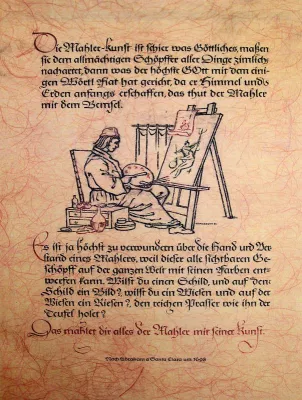 Die Mahler-Kunst ist schier was Göttliches, maßen
sie dem allmächtigen Schöpffer aller Dinge zimlich
nachartet, dann was der höchste GOtt mit dem eini-
gen Wörtl Fiat hat gericht, da er Himmel und
Erden anfangs erschaffen, das thut der Mahler
mit dem Bemsel.
Es ist ja höchst zu verwundern über die Hand und Ver-
stand eines Mahlers, weil dieser alle sichtbaren Ge-
schöpff auf der ganzen Welt mit seinen Farben ent-
werffen kann. Wilst du einen Schild, und auf den
Schild ein Bild?, wilst du ein Wiesen und auf der
Wiesen ein Riesen?, den reichen Prasser wie ihn der
Teufel holet?
Das mahlet dir alles der Mahler mit seiner Kunst.
Nach Abraham a Santa Clara um 1698